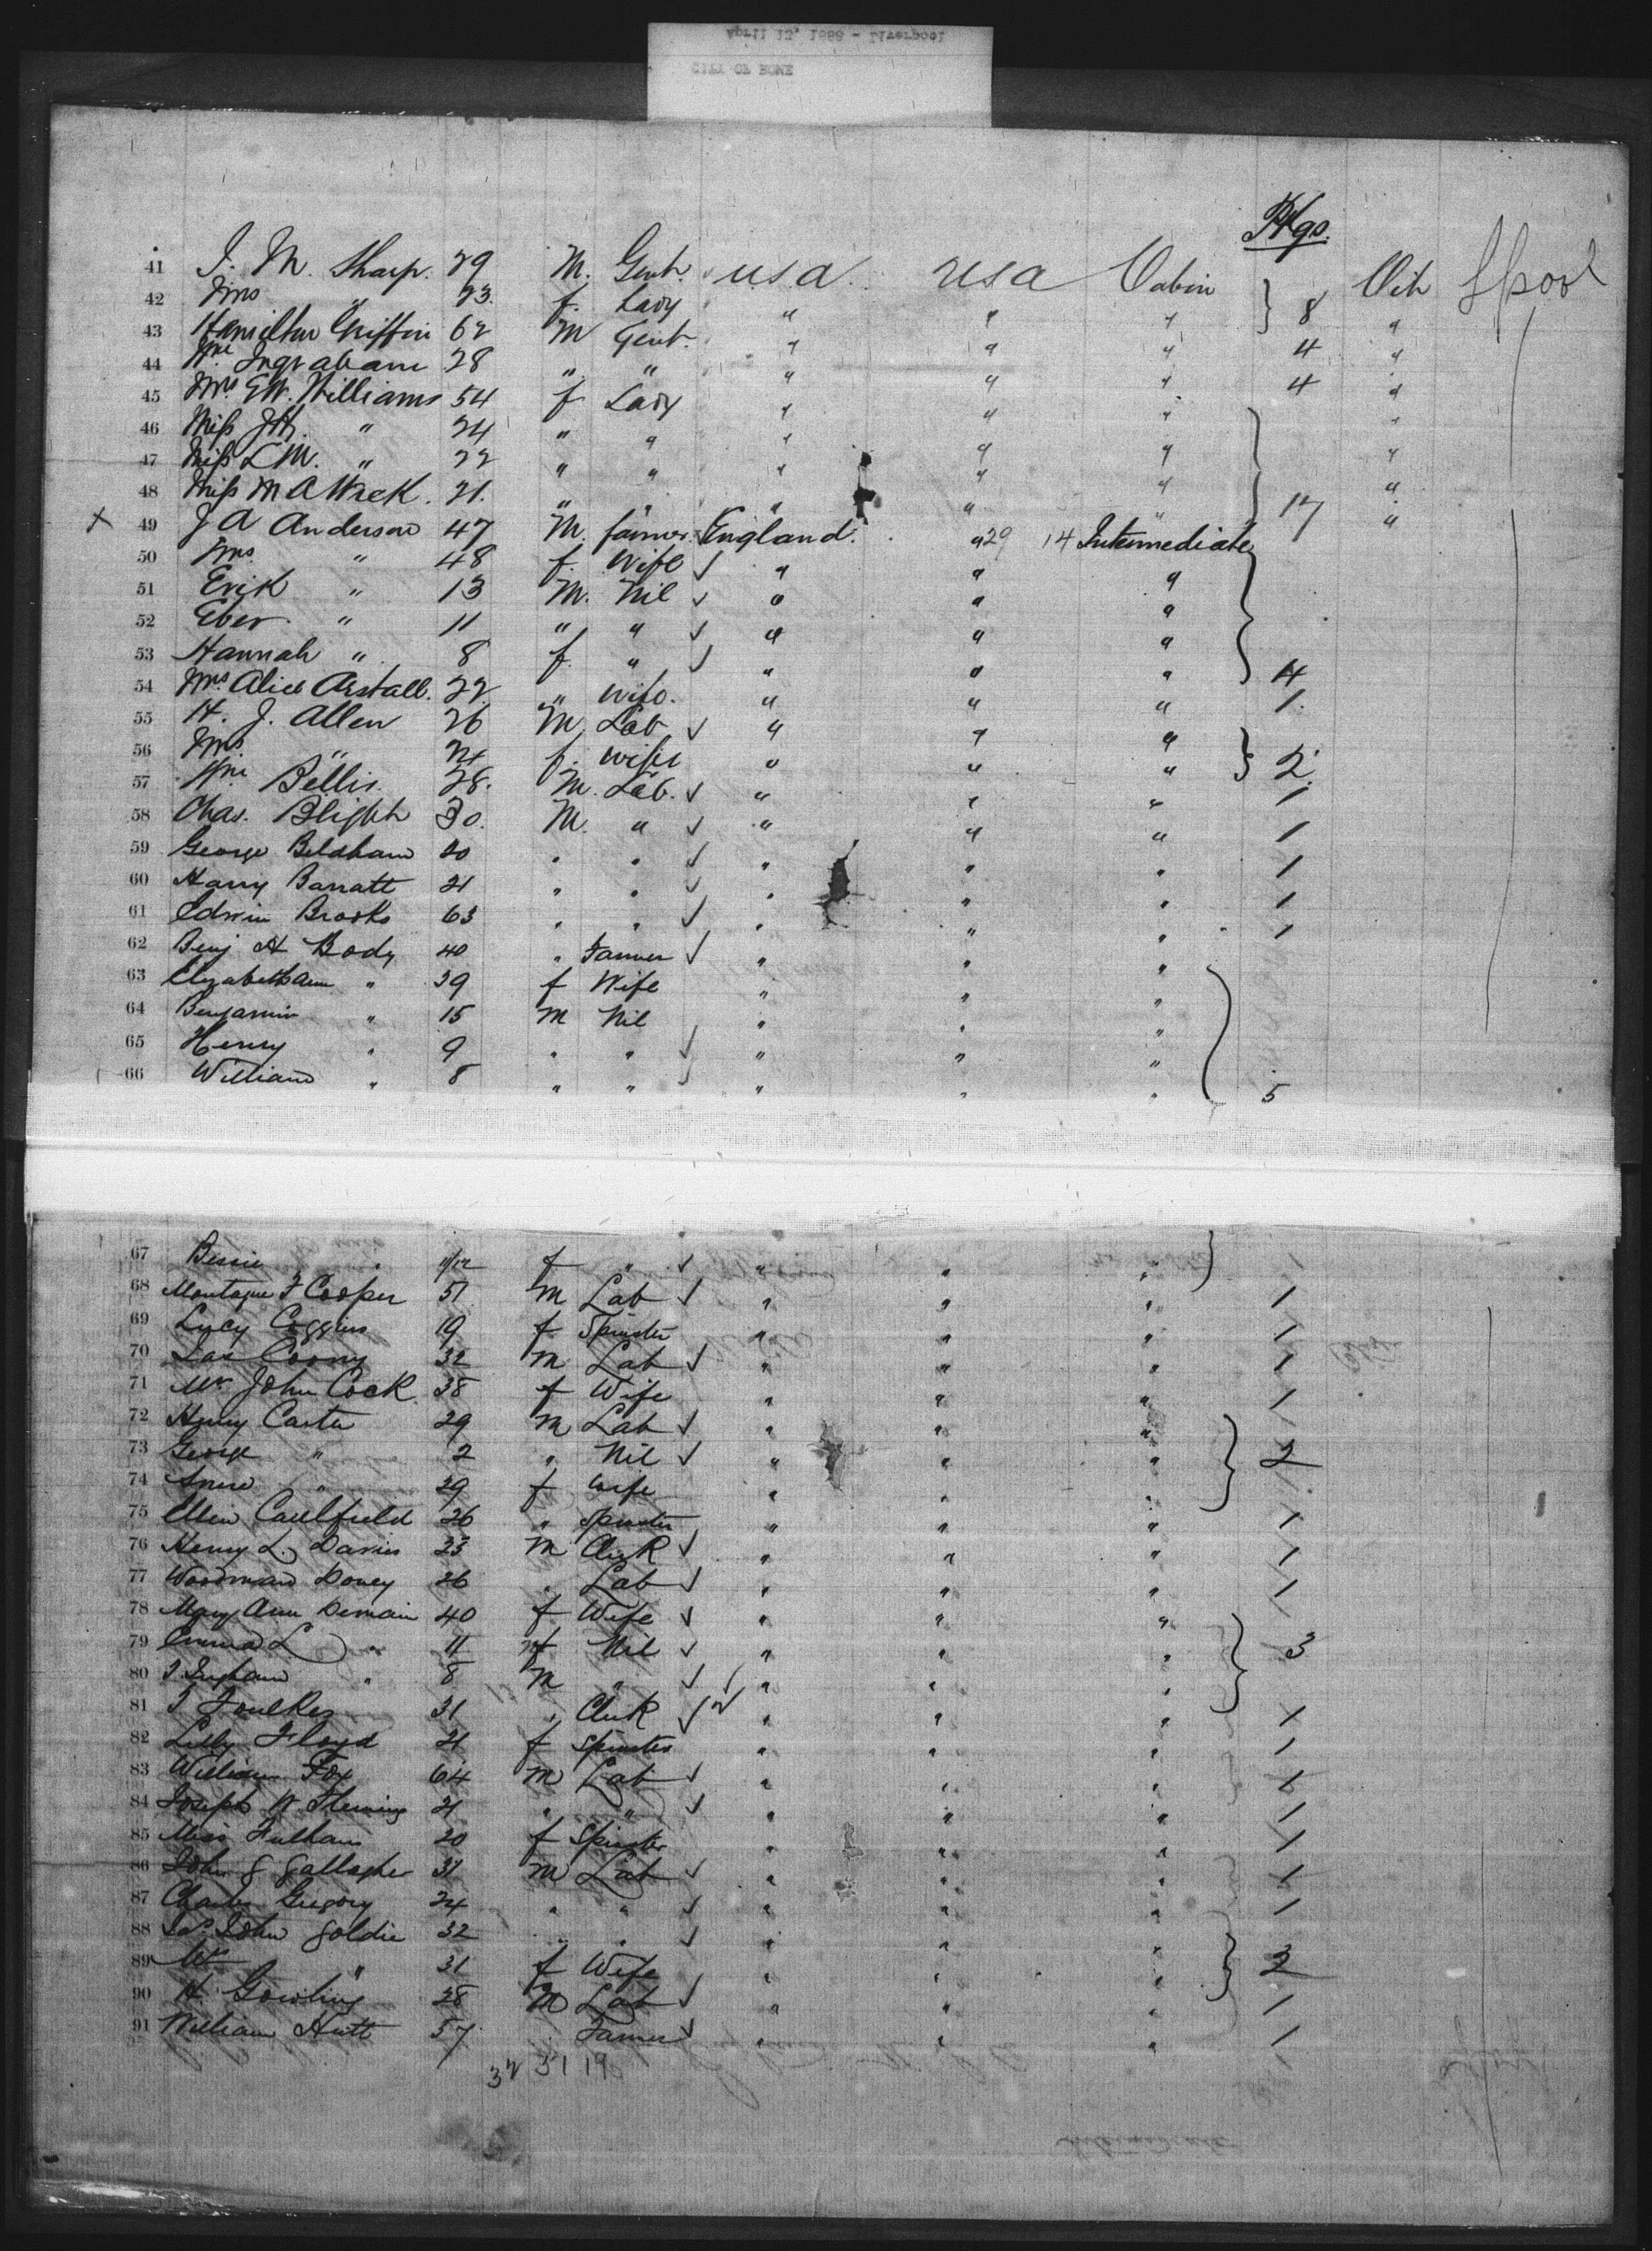 April 12, 1888 - Liverpool
CITY OF ROME
Pkgs.
41 J. M. Sharp. 29 M. Gent. USA USA Cabin Cih Lpool
42 Mrs " 23. f. Lady " " " } 8 "
43 Hamilton Griffin 62 M Gent. " " " 4 "
44 Wm Ingraham 28 " " " " " 4 "
45 Mrs E.W. Williams 54 f Lady " " " "
46 Miss J.H. " 24 " " " " " "
47 Miss L.M. " 22 " " " " " "
48 Miss M A Wick. 21. " " " " " } 17 "
x 49 J A Anderson 47 M. farmer England. " 29 14 Intermediate
50 Mrs " 48 f. Wife √ " " "
51 Erik " 13 M. Nil √ " " "
52 Eber " 11 " " √ " " "
53 Hannah " 8 f. " √ " " " } 4
54 Mrs Alice Arstall. 22 " Wife. " " " 1.
55 H. J. Allen 26 M Lab √ " " "
56 Mrs. " 24 f. wife " " " } 2.
57 Wm Bellis. 28. M. Lab. √ " " " 1
58 Chas. Blight 30. M. " √ " " " 1
59 George Beldham 20 " " √ " " " 1
60 Harry Barratt 21 " " √ " " " 1
61 Edwin Brooks 63 " " √ " " " 1
62 Benj H Body 40 " Farmer √ " " "
63 Elizabeth Ann " 39 f Wife " " "
64 Benjamin " 15 M Nil " " "
65 Henry " 9 " " √ " " "
66 William " 8 " " " " " 5
67 Bessie " 11/12 f " √ " " " }
68 Montague F Cooper 51 M Lab √ " " " 1
69 Lucy Coggins 19 f Spinster " " " 1
70 Jas Coony 32 M Lab √ " " " 1
71 Mrs John Cock 38 f Wife " " " 1
72 Henry Carter 29 M Lab √ " " "
73 George " 2 " Nil √ " " " } 2
74 " 29 f Wife " " "
75 Ellen Caulfield 26 " Spinster " " " 1
76 Henry L. Davies 23 M Clerk √ " " " 1
77 Woodman Doney 26 " Lab √ " " " 1
78 Mary Ann Demain 40 f Wife √ " " "
79 Emma L " 11 f Nil √ " " " } 3
80 J. Ingham " 8 M " √ " " "
81 J Foulkes 31 " Clerk √ " " " 1
82 Lilly Floyd 21 f Spinster " " " 1
83 William Fox 64 M Lab √ " " " 1
84 Joseph W. Fleming 21 " " √ " " " 1
85 Miss Fulham 20 f Spinster " " " 1
86 John G Gallagher 31 M Lab √ " " " 1
87 Charles Gregory 24 " " √ " " " 1
88 John Goldie 32 " " √ " " "
89 Mrs " 31 f Wife " " " } 2
90 H. Gowling 28 M Lab √ " " " 1
91 William Hutt 57 " Farmer √ " " " 1
32 51 19